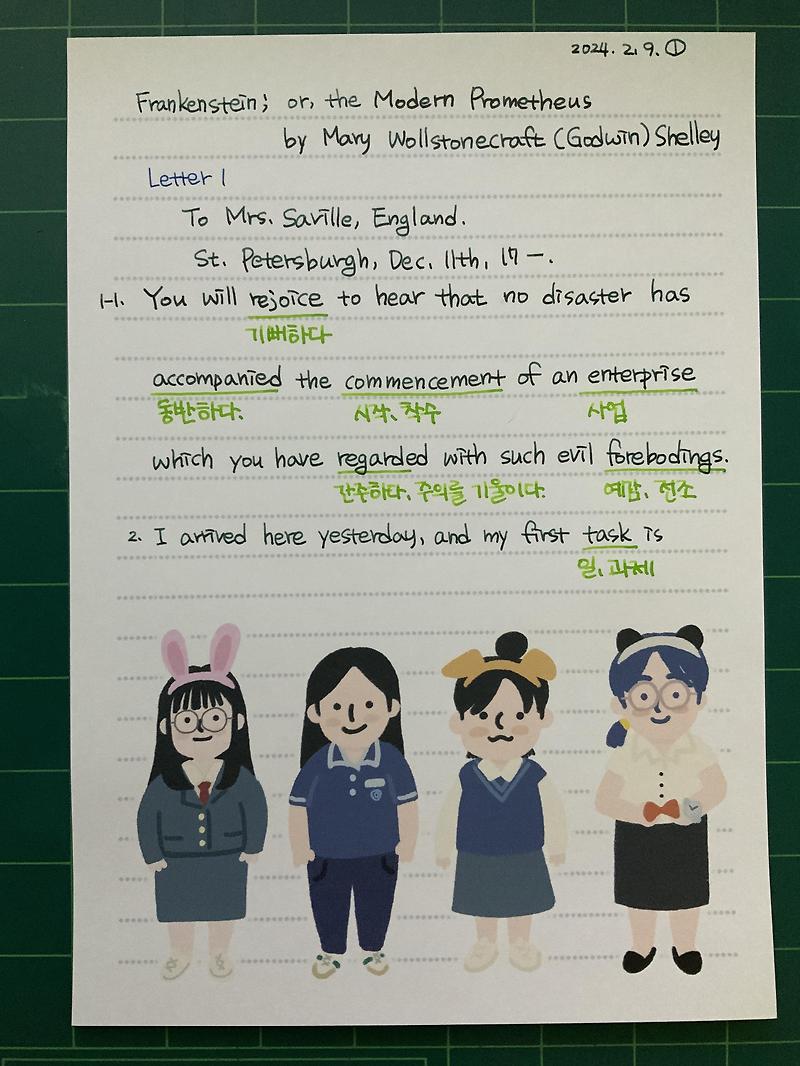 2024. 2. 9. ①
Frankenstein; or, the Modern Prometheus
by Mary Wollstonecraft (Godwin) Shelley
Letter 1
To Mrs. Saville, England.
St. Petersburgh, Dec. 11th, 17 —.
1-1. You will rejoice to hear that no disaster has
기뻐하다
accompanied the commencement of an enterprise
동반하다. 시작, 착수 사업
which you have regarded with such evil forebodings.
간주하다, 주의를 기울이다. 예감, 전조
2. I arrived here yesterday, and my first task is
일, 과제